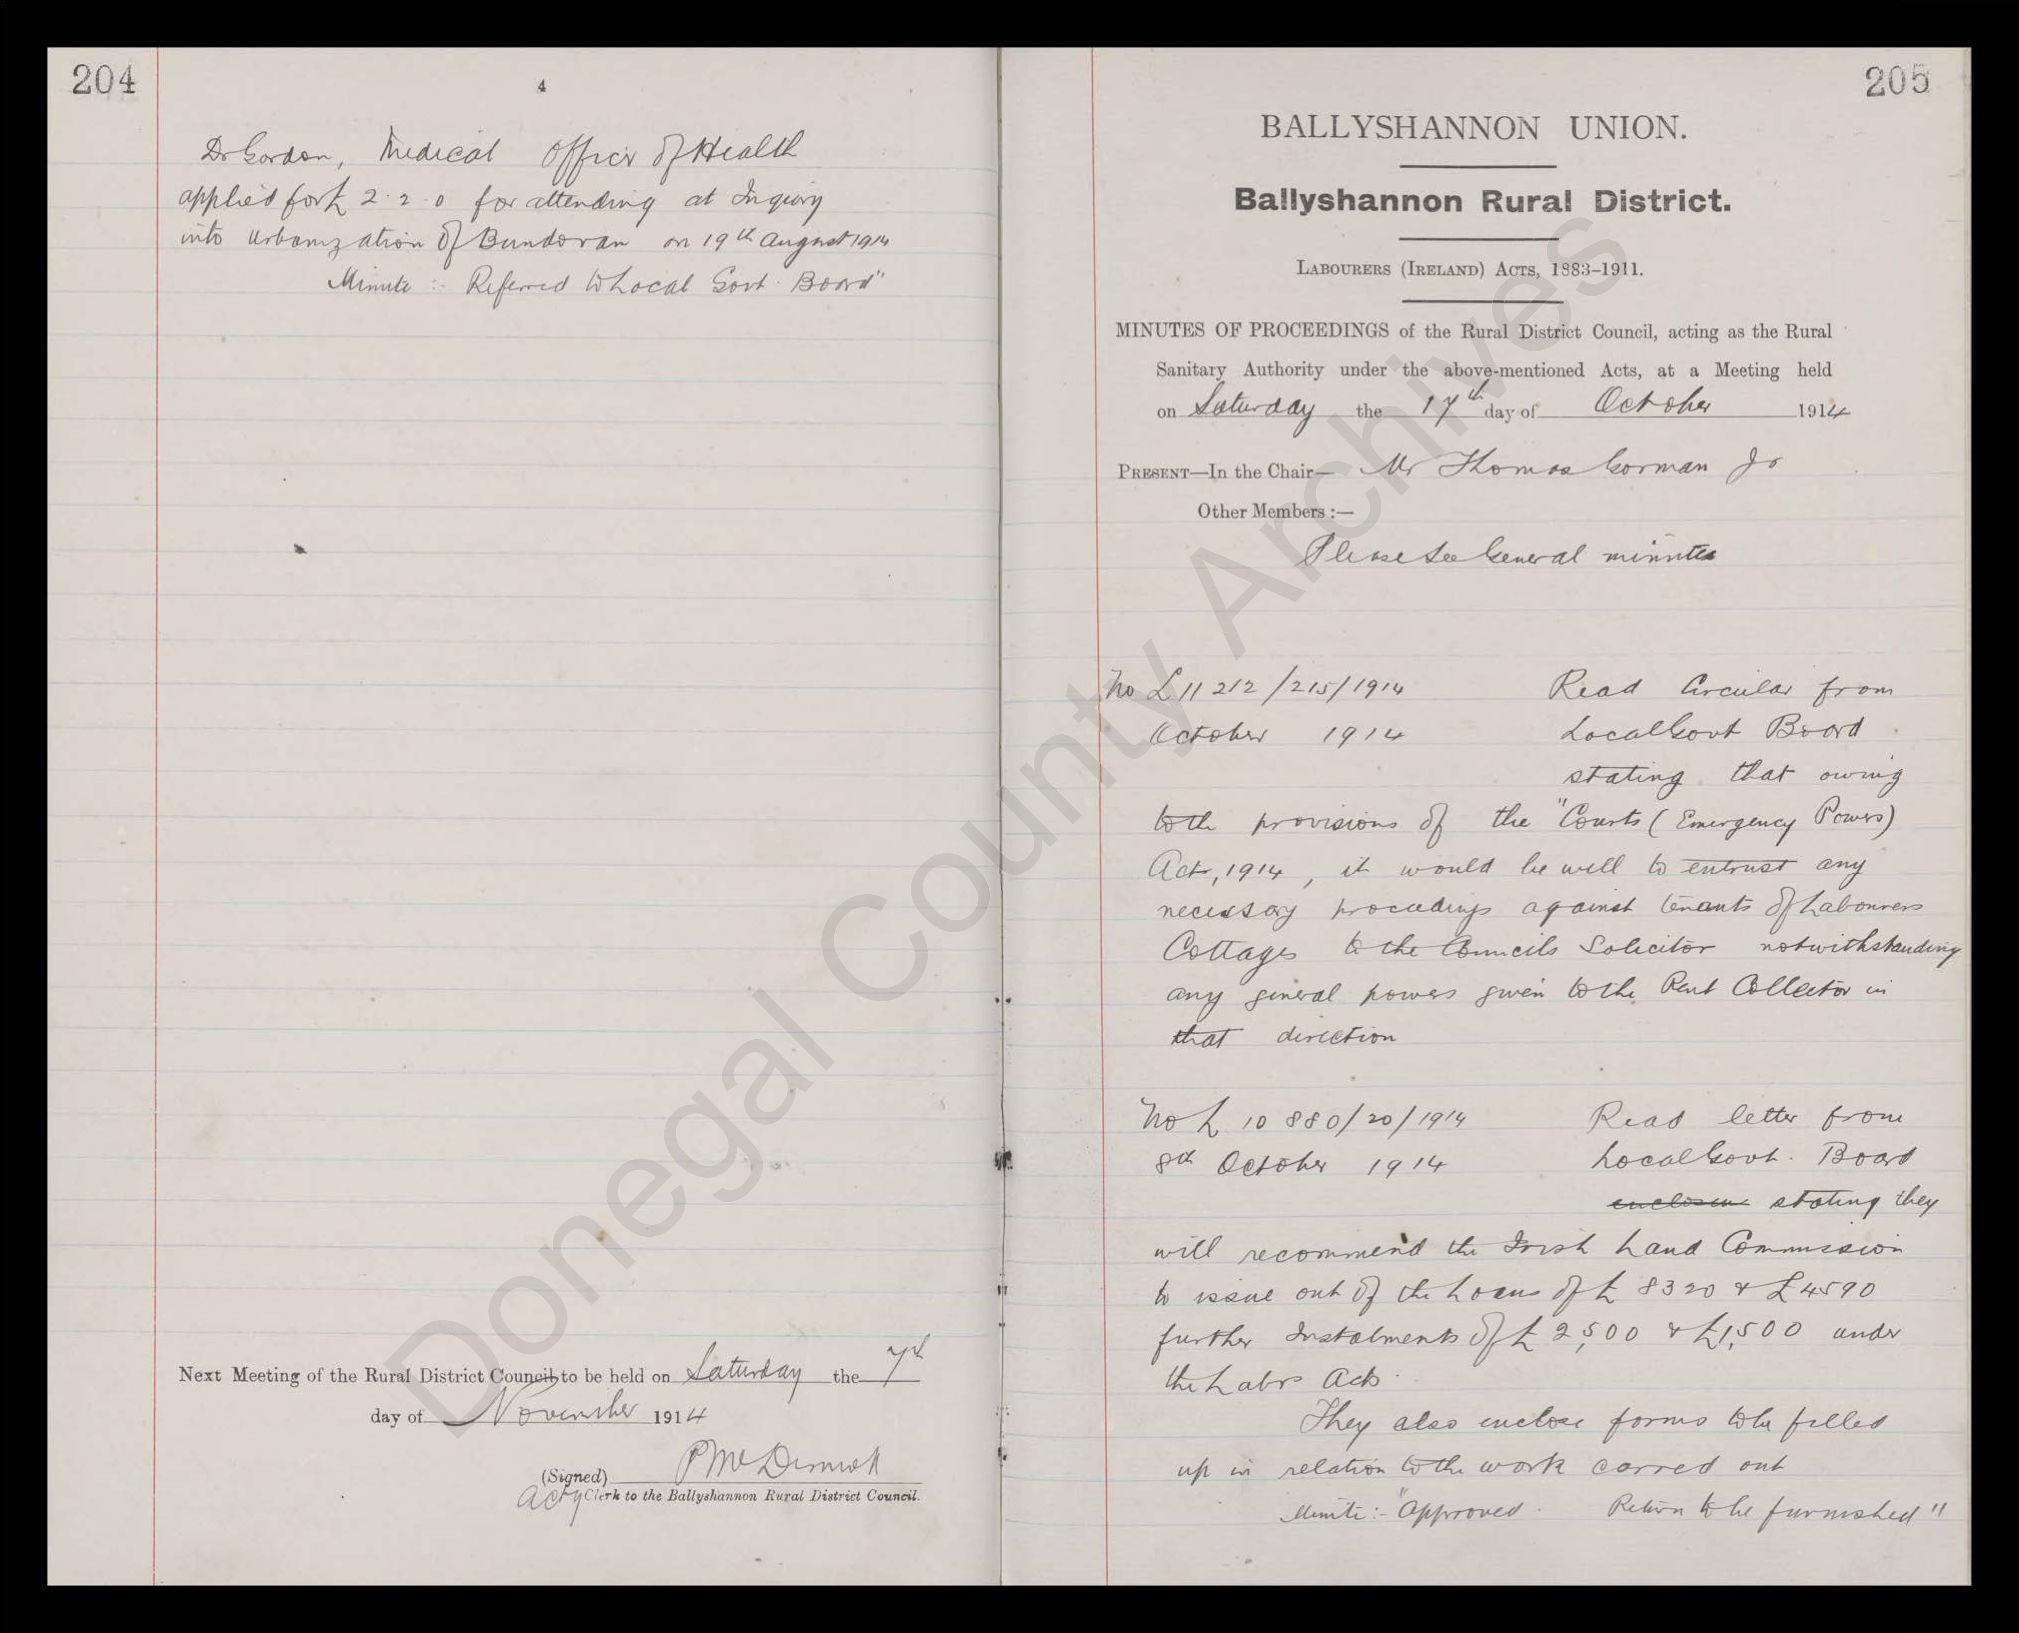 204
4
Dr Gordon, Medical Officer of Health
applied for £ 2.2.0 for attending at Inquiry
into Urbanization of Bundoran on 19th August 1914
Minute :- Referred to Local Govt. Board"
Next Meeting of the Rural District Council to be held on Saturday the 7th
day of November 1914
(Signed) P McDermott
Actg Clerk to the Ballyshannon Rural District Council.
205
BALLYSHANNON UNION.
Ballyshannon Rural District.
LABOURERS (IRELAND) ACTS, 1883–1911.
MINUTES OF PROCEEDINGS of the Rural District Council, acting as the Rural
Sanitary Authority under the above-mentioned Acts, at a Meeting held
on Saturday the 17th day of October 1914
PRESENT—In the Chair— Mr Thomas Gorman Jr
Other Members :—
Please see General minutes
No L 11 212/215/1914 Read Circular from
October 1914 Local Govt Board
stating that owing
to the provisions of the "Courts (Emergency Powers)
Act, 1914, it would be well to entrust any
necessary proceedings against tenants of Labourers
Cottages to the Councils Solicitor notwithstanding
any general powers given to the Rent Collector in
that direction
No L 10 880/20/1914 Read letter from
8th October 1914 Local Govt. Board
stating they
will recommend the Irish Land Commission
to issue out of the Loans of £ 8320 & £4590
further Instalments of £ 2,500 & £1,500 under
the Labrs Acts.
They also enclose forms to be filled
up in relation to the work carred out
Minute:- "Approved. Return to be furnished"
Donegal County Archives